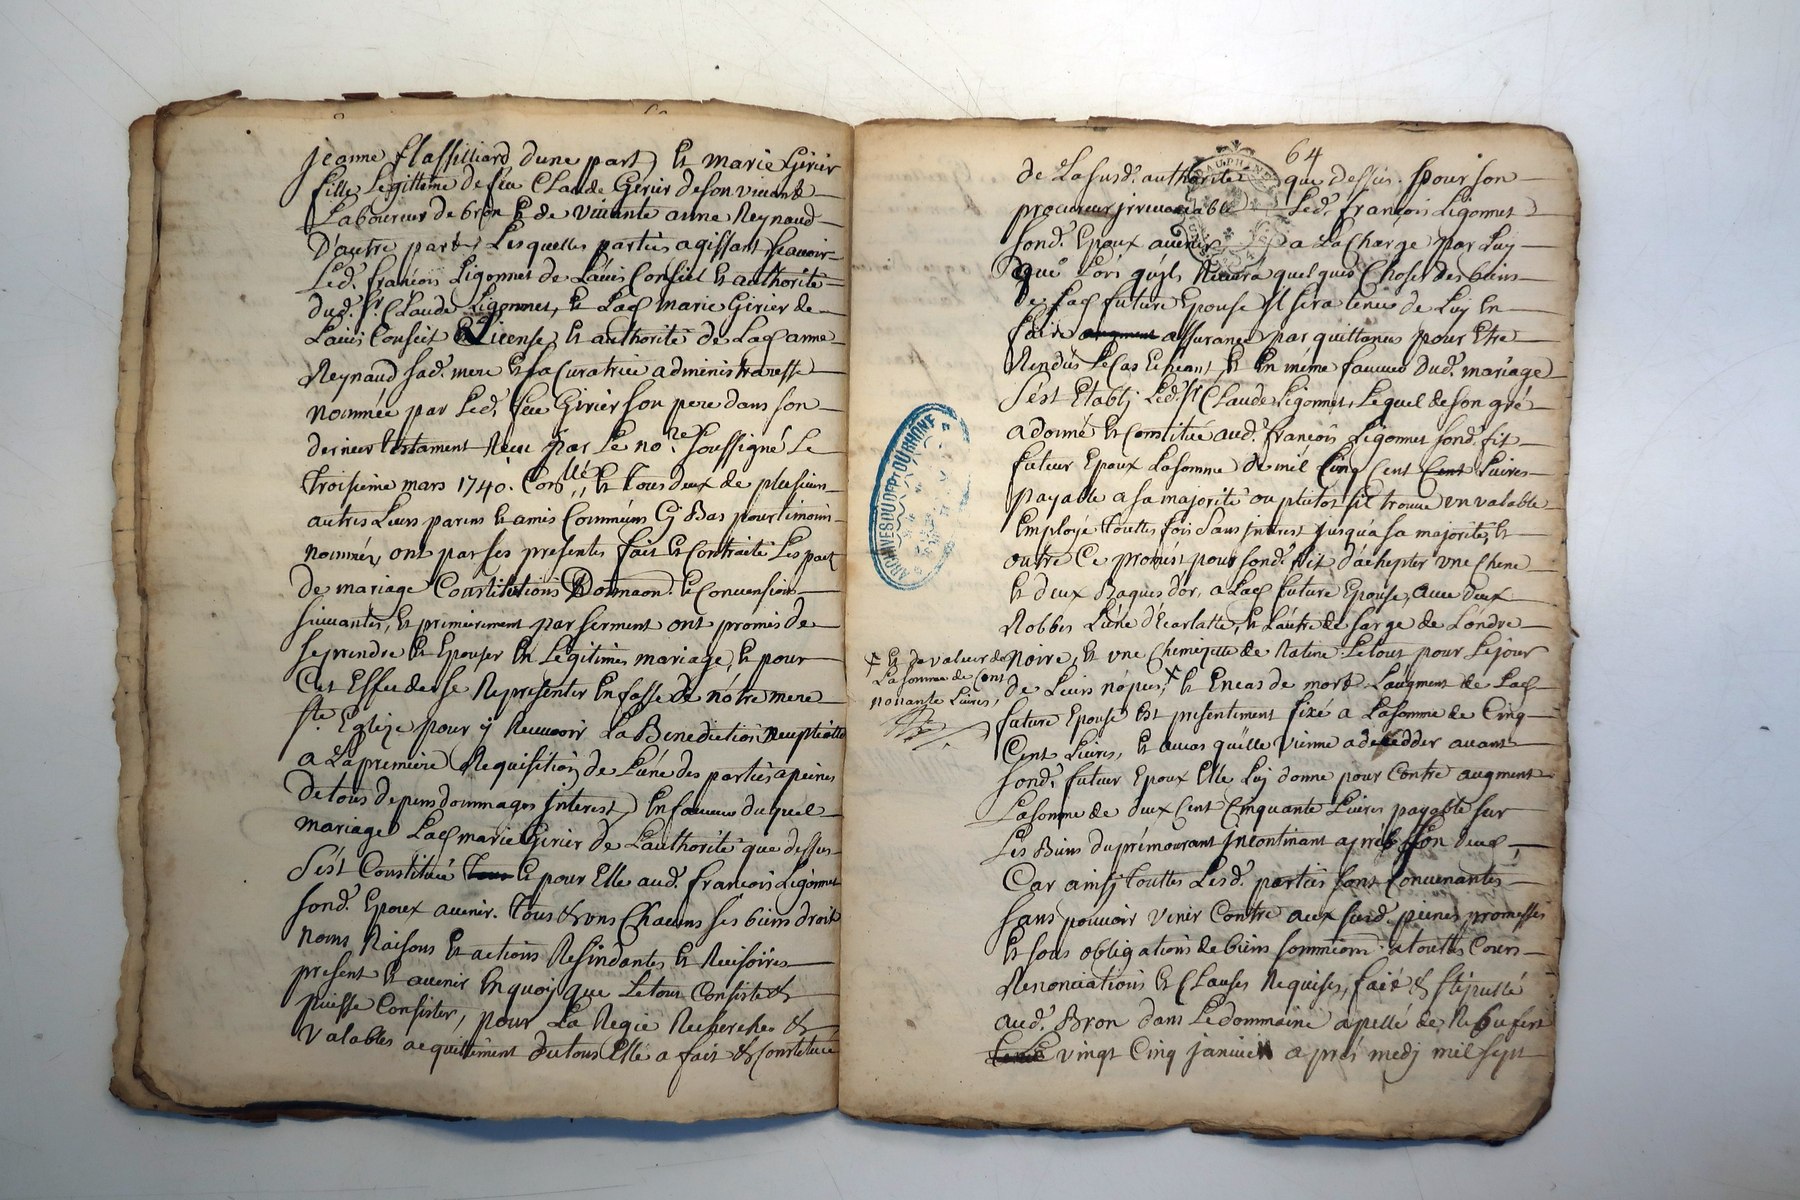 jeanne flassilliard dune part) et marie Girier
fille legitteme de feu Claude Girier de son vivant
Laboureur de bron et de vivante anne Reynaud
D'autre part, Lesquelles parties agissant scavoir
Led. francois Ligonnet de Lavis Conseil et authorité
dud. sr. Claude Ligonnet, et Lad marie Girier de
Lavis Conseil et License, et authorité de Lad anne
Reynaud sad. mere et sa Curatrice administraresse
nommée par Led. feu Girier son pere dans son
dernier testament Receu par Le nore. soussigné Le
troisième mars 1740. Conllé. et tous deux de plusieurs
autres Leurs parens et amis Communs Cy Bas pour timoin
nommés, ont par ses presentes fait et Contraité Les pact
de mariage Constitutions Donnaon. et Conventions
suivantes, et premierement par serment ont promis de
se prendre et Epouser En Legitimes mariage, et pour
Cet Effet de se Representer En fasse de nôtre mere
ste. Eglize pour y Recevoir La Benediction nuptialle
a La premiere Requisition de L'une des parties a peines
de tous depens dommages Interest) En faveur du quel
mariage Lad marie Girier de L'authorité que dessus
s'est Constituée et pour Elle aud. francois Ligonnet
sond. Epoux avenir. Tous et uns Chacuns ses biens droit
noms Raisons et actions Resindantes et Recisoires
present et avenir En quoy que Le tout Consiste et
puisse Consister, pour La Regie Recherches et
valables acquittement du tout Elle a fait et Constitué
64
de La susd. authorité que dessus. pour son
procureur jrrevocable Led. francois Ligonnet
sond. Epoux avenir a La Charge par Luy
que Lors qu'il Recevra quelques Choses des biens
de Lad future Epouse Il sera tenu de Luy En
faire assurance par quittances pour Etre
Rendus Le Cas Echeant, et En même faveur dud. mariage
S'est Etably Led. sr Claude Ligonnet, Lequel de son gré
a donné et Constitué aud. francois Ligonnet sond. fit
futur Epoux La somme de mil Cinq Cent Livres
payable a sa majorité ou plutot s'il trouve un valable
Employe touttes fois sans Interest jusqu'a sa majorité, et
outre Ce promest pour sond. fit d'achepter une Chene
et deux Bagues d'or, a Lad future Epouse, avec deux
Robbes L'une d'Ecarlatte, et L'autre de sarge de Londre
noire, et une Chemizette de Ratine Le tout pour Le jour
de Leurs nôpces, + et En cas de mort L'augment de Lad
+ et de valeur de
La somme de Cent
nonante Livres,
future Epouse Est presentement fixé a La somme de Cinq
Cent Livres, et aucas qu'Elle vienne a decedder avant
sond. futur Epoux Elle Luy donne pour Contre augment
La somme de deux Cent Cinquante Livres payable sur
Les Biens du prémourant Incontinant aprés son deced,
Car ainsy touttes Lesd. parties sont Convenantes
sans pouvoir venir Contre aux susd. peines promesses
et sous obligations de biens sommions. a touttes Cours
Renonciations et Clauses Requises, fait et stipullé
aud. Bron dans Le dommaine apellé de Rebufert
vingt Cinq janvier aprés medj mil sept
ARCHIVES DU DEPT DU RHONE